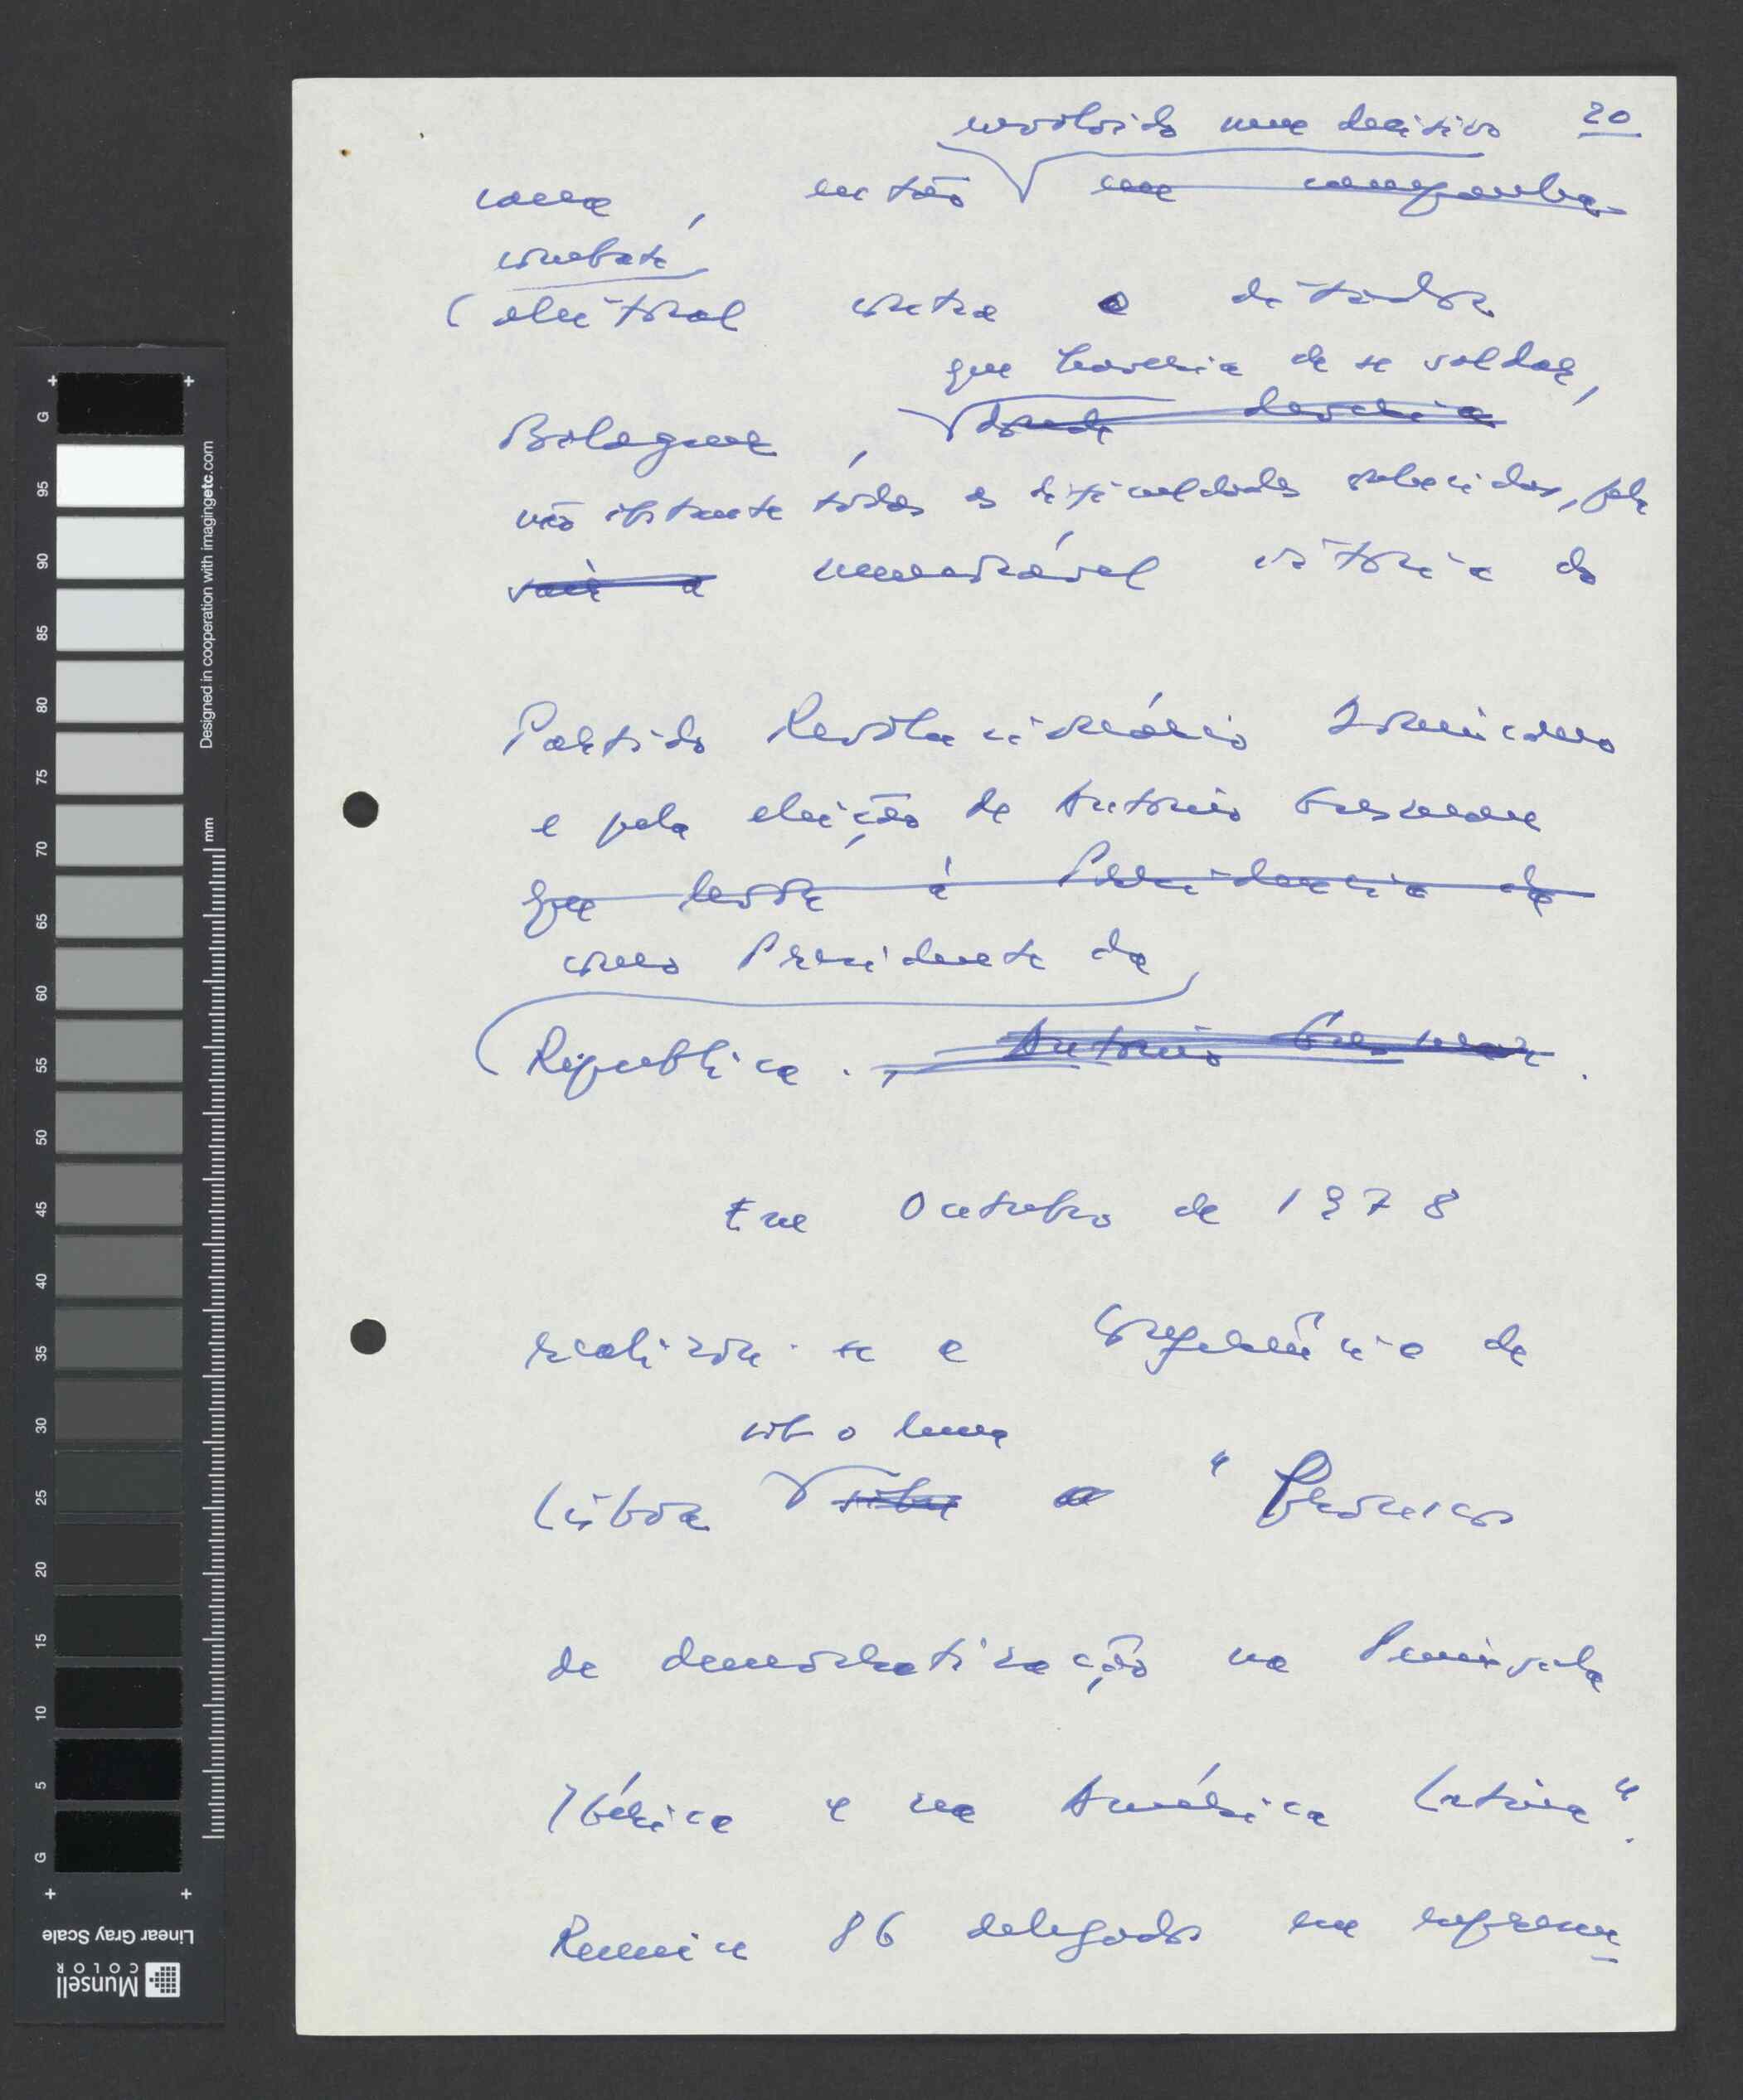 20
envolvido num decisivo
cana, então em campanha
combate
eleitoral contra o ditador
que haveria de se soldar,
Balaguer, donde haveria
não obstante todas as dificuldades conhecidas, pela
sair a memorável vitória do
Partido Revolucionário Dominicano
e pela eleição de Antonio Guzman
que levou à Presidencia da
como Presidente da
Republica. Antonio Guzman.
Em Outubro de 1978
realizou-se a Conferência de
sob o lema
Lisboa sobre o "Processo
de democratização na Peninsula
Ibérica e na América Latina".
Reuniu 86 delegados em represen
Designed in cooperation with imagingetc.com
mm
G 95 90 85 80 75 70 65 60 55 50 45 40 35 30 25 20 15 10 5 G
Linear Gray Scale
Munsell
COLOR